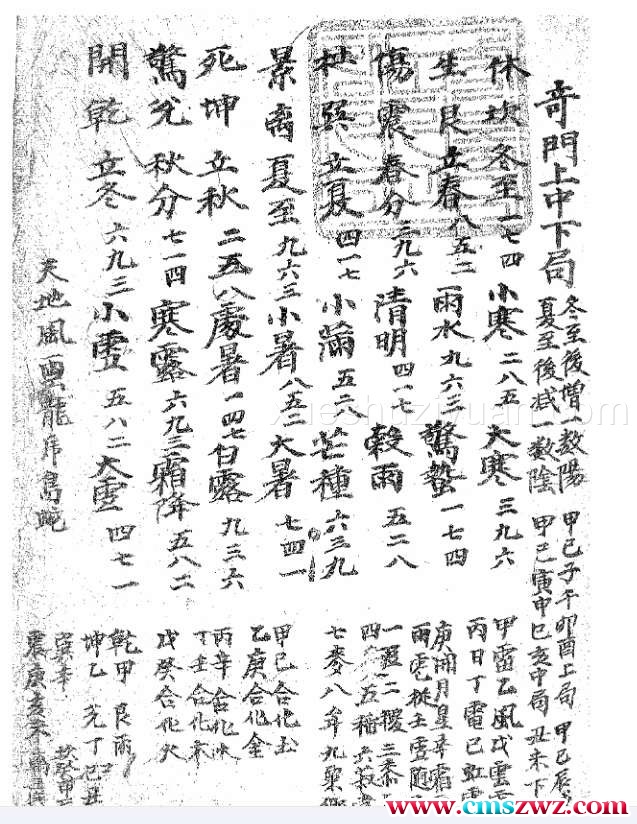 奇門上中下局
冬至後增一数陽
夏至後减一数陰
甲己子午卯酉上局 甲己辰
甲己寅申巳亥中局丑未下
休坎冬至一七四小寒二八五大寒三九六
生艮立春八五二雨水九六三驚蟄一七四
傷震春分三九六清明四一七穀雨五二八
杜巽立夏四一七小滿五二八芒種六三九
景离夏至九六三小暑八五二大暑七四一
死坤立秋二五八處暑一四七白露九三六
驚兊秋分七一四寒露六九三霜降五八二
開乾立冬六九三小雪五八二大雪四七一
天地風雲龍虎鳥蛇
甲雷乙風戊雲
丙日丁電己虹
月星辛霜
七麥八牟九粟
甲己合化土
乙庚合化金
丙辛合化水
丁壬合化木
戊癸合化火
乾甲艮丙
坤乙兊丁巳丑
巽辛
震庚亥未
www.cmszwz.com